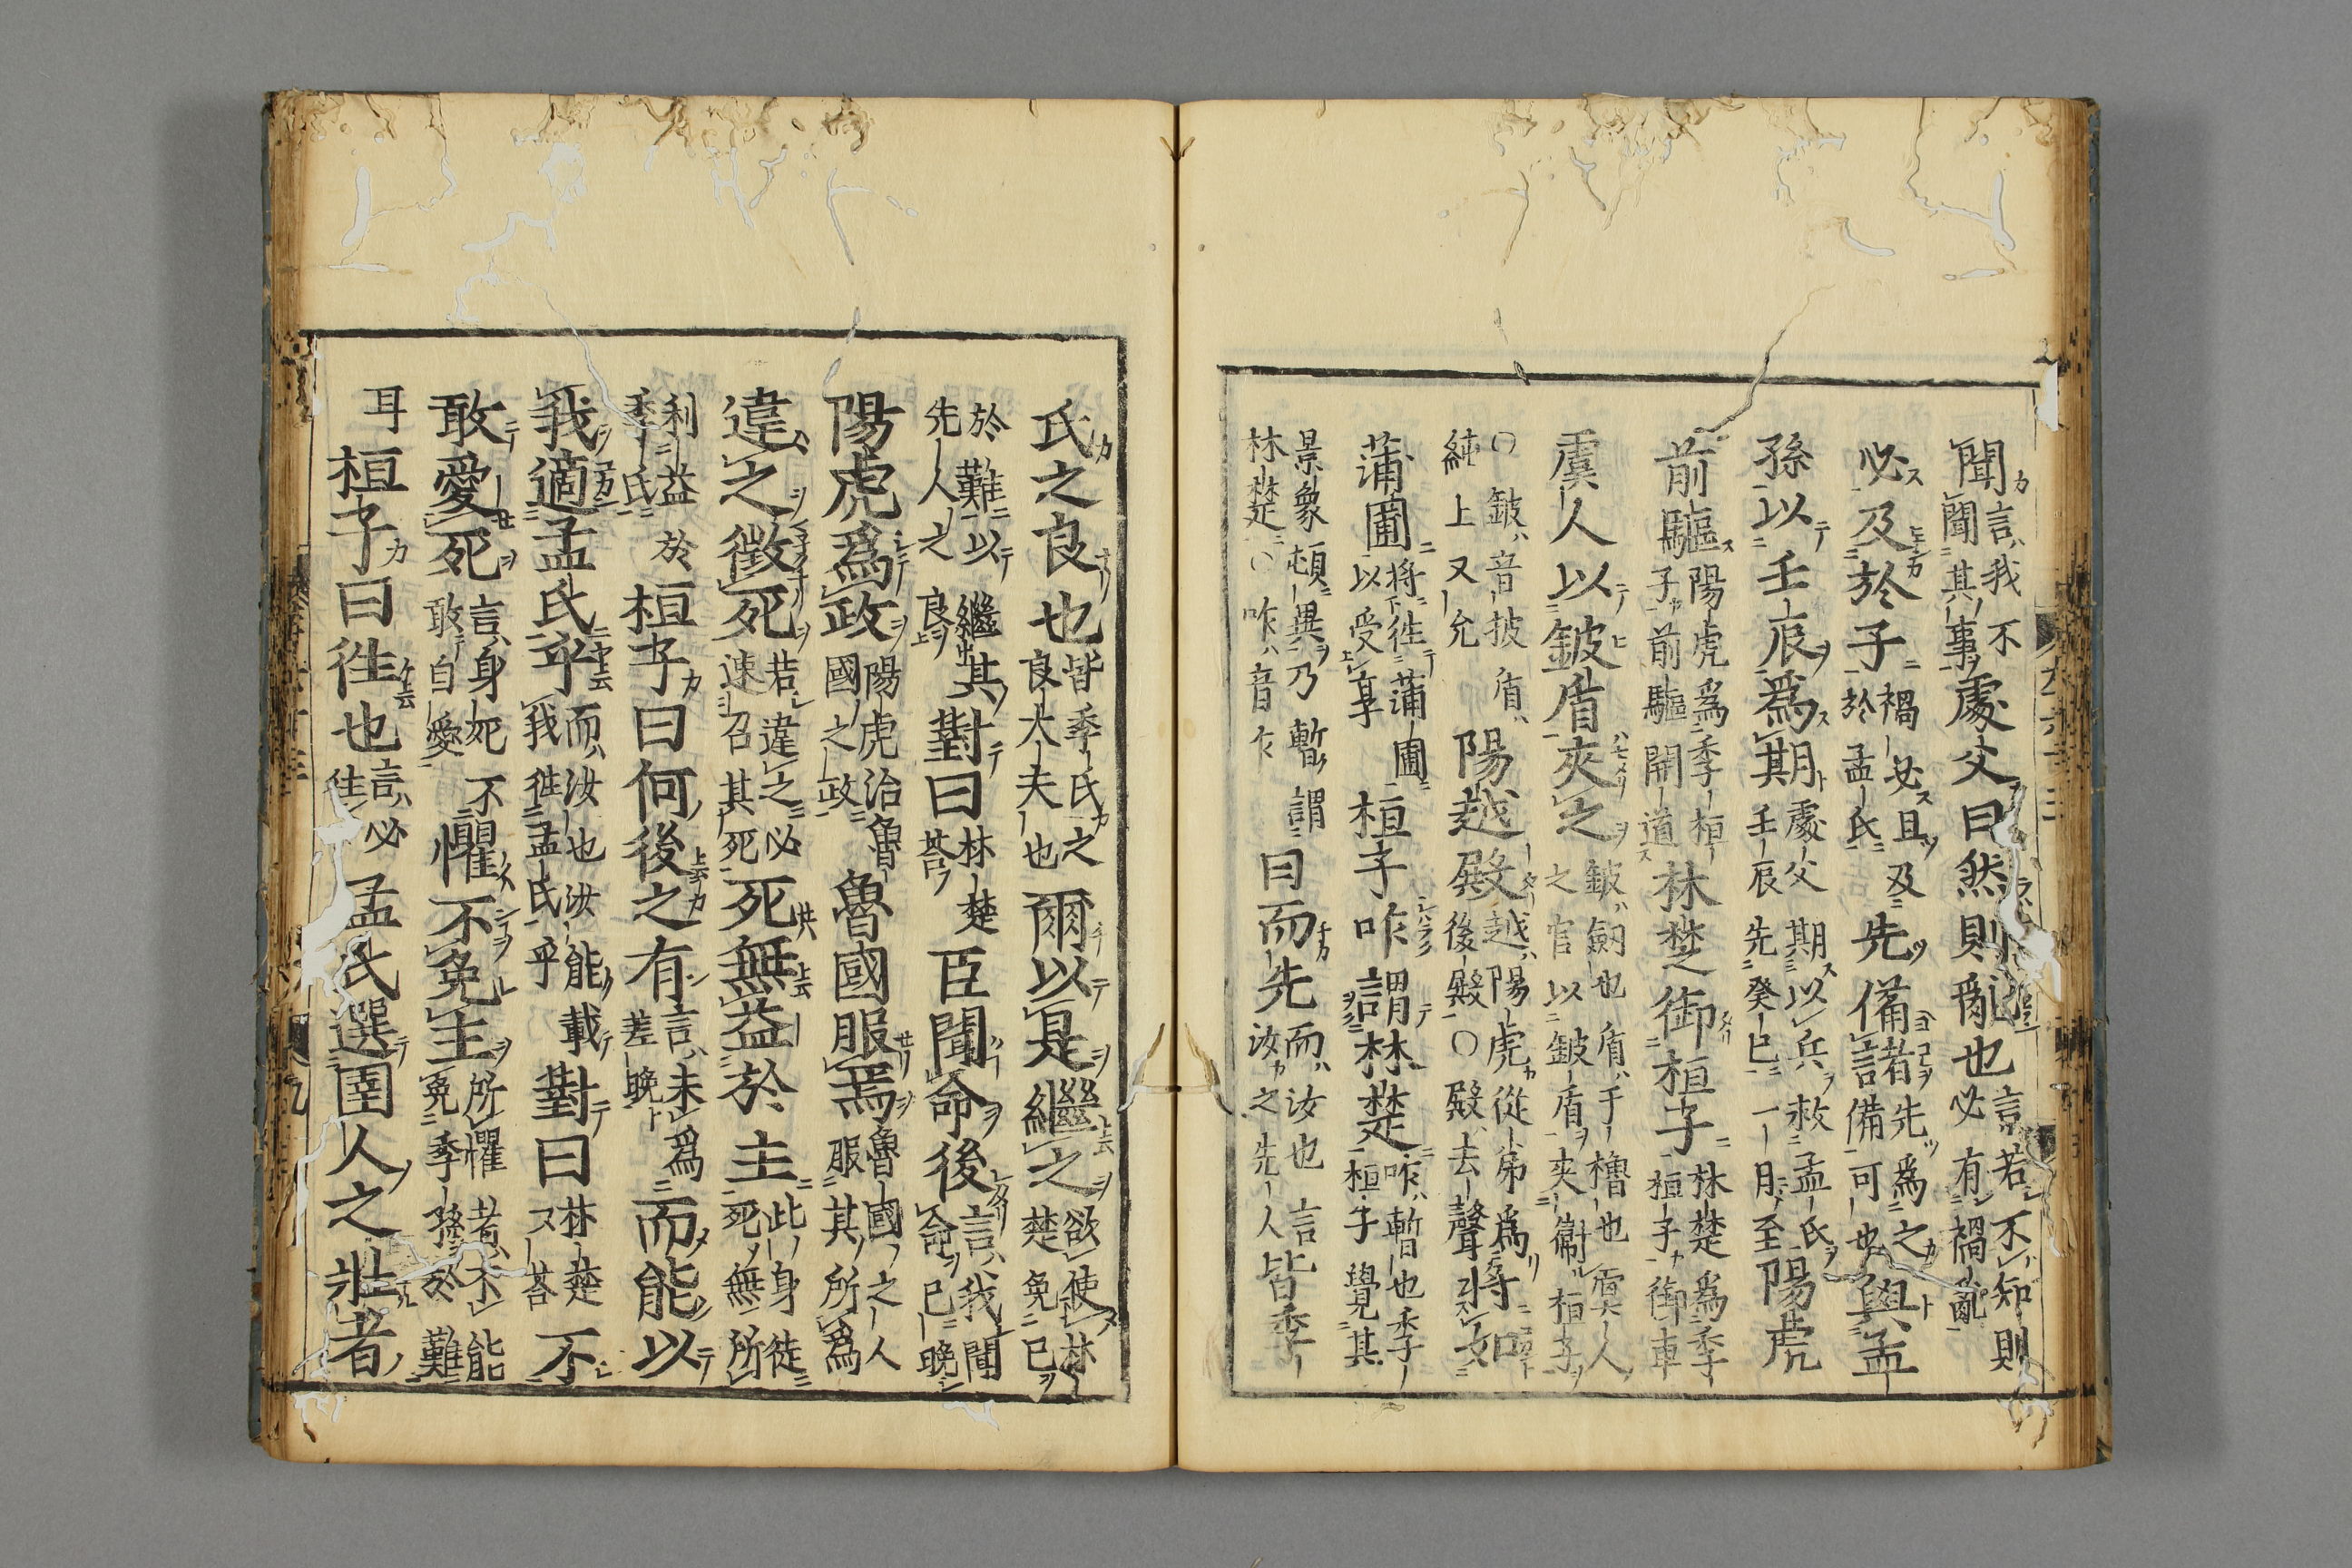 聞言我不聞其事處父曰然則亂也言若不知則必有禍亂
必及於子禍必且及於孟氏先備諸先爲之備可也與孟
孫以壬辰爲期處父期以兵救孟氏壬辰先癸巳一月至陽虎
前驅陽虎爲季桓子前驅開道林楚御桓子林楚爲季桓子御車
虞人以鈹盾夾之鈹劔也盾手櫓也虞人之官以鈹盾夾衞桓子
〇鈹音披盾純上又允陽越殿越陽虎從弟爲後殿〇殿去聲將如
蒲圃將徃蒲圃以受享桓子咋謂林楚咋暫也季桓子覺其
景象頓異乃暫謂林楚〇咋音乍曰而先而汝也言汝之先人皆季
氏之良也皆季氏之良大夫也爾以是繼之欲使林楚免已
於難以繼其先人之良對曰林楚荅臣聞命後言我聞命已晚
陽虎爲政陽虎治魯國之政魯國服焉魯國之人服其所爲
違之徴死若違之必速召其死死無益於主此身徒死無所
利益於季氏桓子曰何後之有言未爲差晚而能以
我適孟氏乎而汝也汝能載我徃孟氏乎對曰林楚又荅不
敢愛死言身死不敢自愛懼不免主所懼者不能免季孫於難
耳桓子曰徃也言必徃孟氏選圉人之壯者